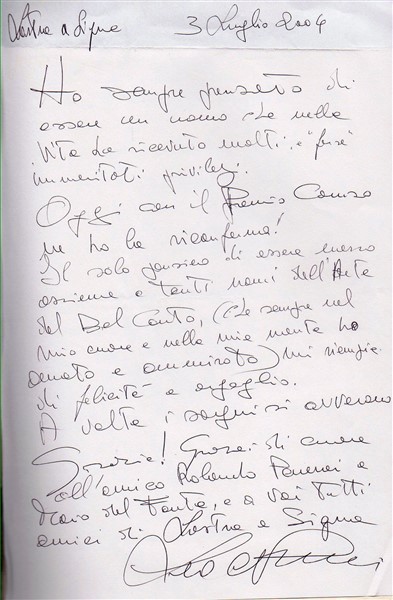 Lastra a Signa 3 Luglio 2004
Ho sempre pensato di
essere un uomo che nella
vita ha ricevuto molti, e "forse"
immeritati privilegi.
Oggi con il Premio Caruso
ne ho la riconferma!
Il solo pensiero di essere messo
assieme a tanti nomi dell'Arte
del Bel Canto, (che sempre nel
mio cuore e nella mia mente ho
amato e ammirato) mi riempie
di felicità e orgoglio.
A volte i sogni si avverano
Grazie! Grazie di cuore
all'amico Rolando Panerai a
del e a voi tutti
amici di Lastra a Signa